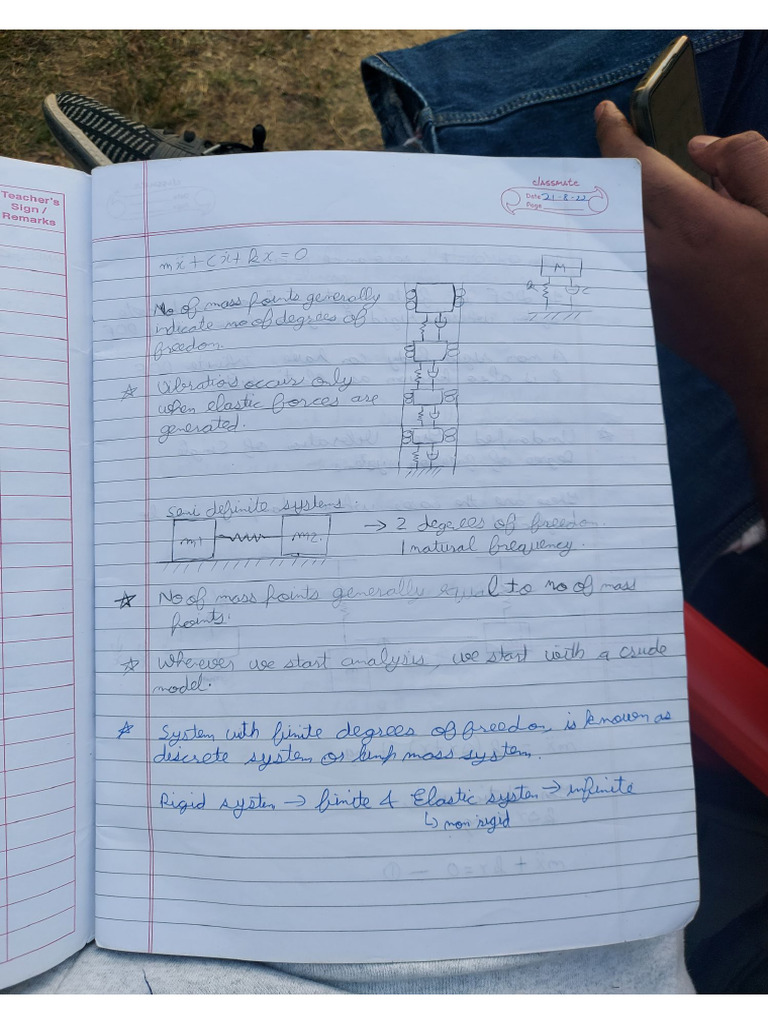 Teacher's
Sign /
Remarks
classmate
Date 21-8-22
Page
mẍ + cẋ + kx = 0
M
k
c
No of mass points generally
indicate no of degrees of
freedom.
☆ Vibrations occur only
when elastic forces are
generated.
Semi definite systems.
m1
m2
→ 2 degrees of freedom.
1 natural frequency.
☆ No of mass points generally equal to no of mass
points.
☆ Wherever we start analysis, we start with a crude
model.
☆ System with finite degrees of freedom, is known as
discrete system or lump mass system.
Rigid system → finite & Elastic system → infinite
↳ non rigid
mẍ + kx = 0 — ①